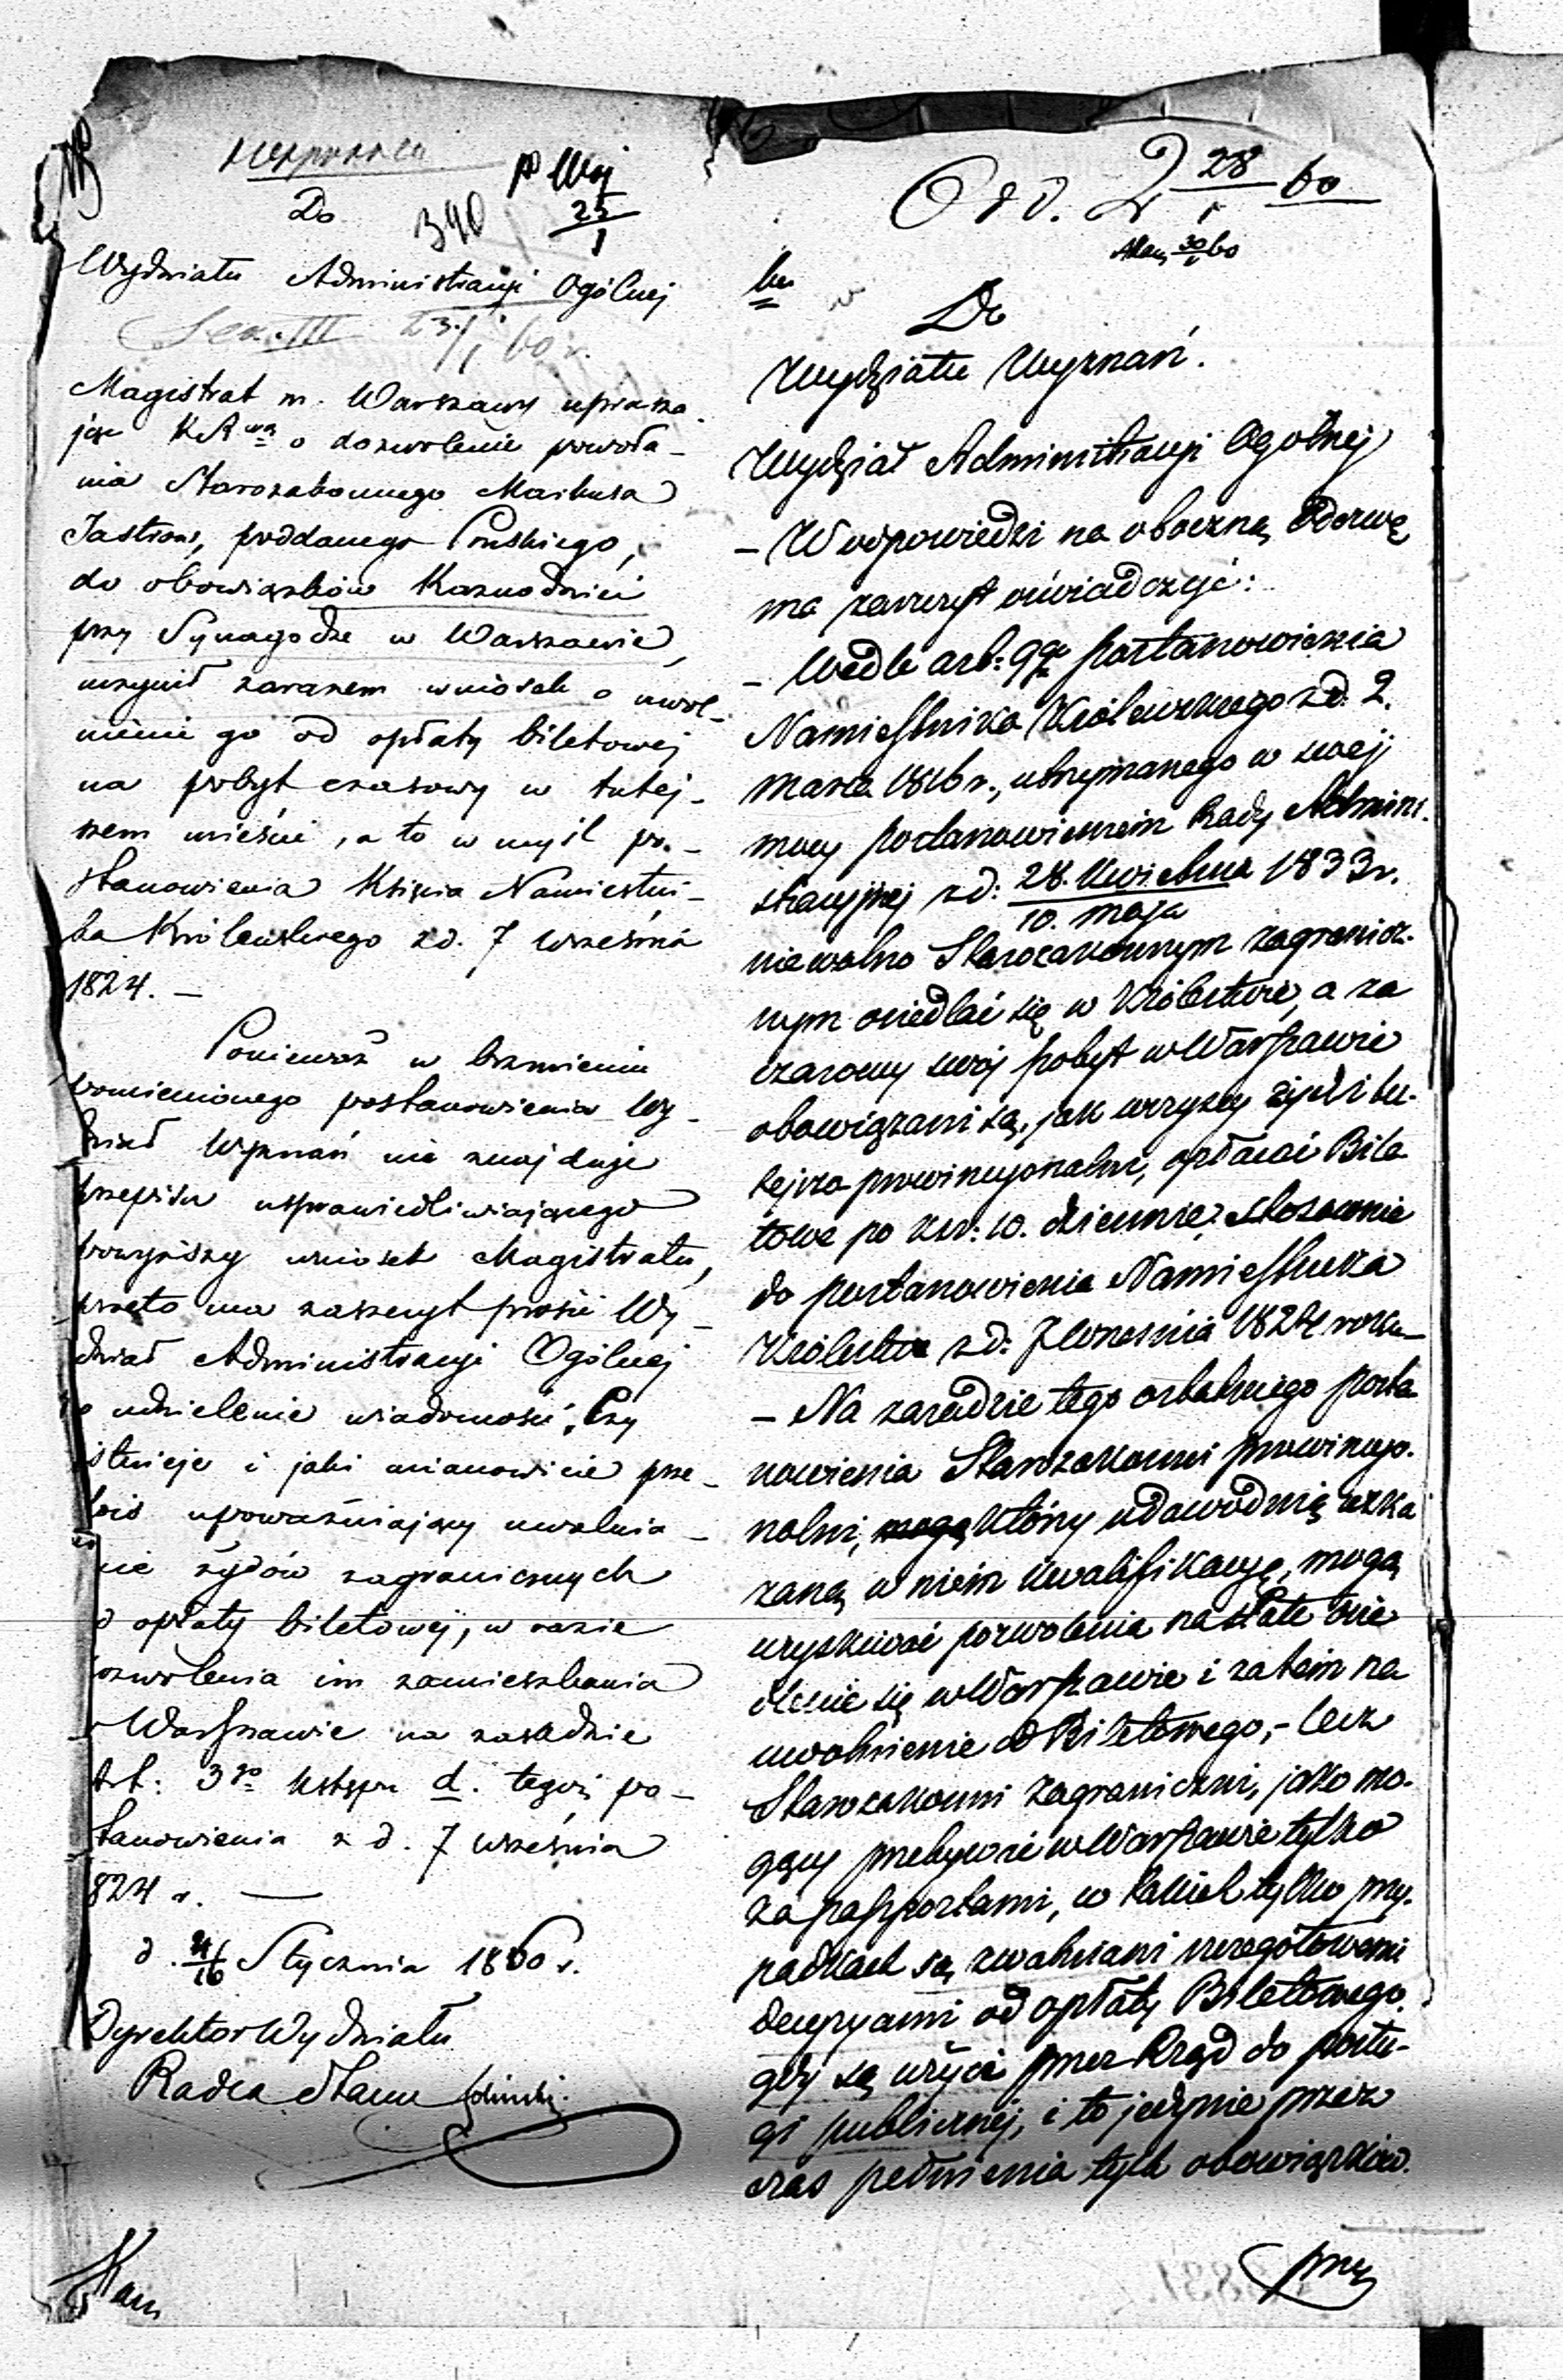 Do
340
25
1
Wydziału Administracyi Ogólnej
Sek. III 23/1 60 r.
Magistrat m. Warszawy uprasza
jąc KR o dozwolenie powoła-
nia Starozakonnego Markusa
Jastrow, poddanego Pruskiego,
do obowiązków Kaznodziei
przy Synagodze w Warszawie,
uczynił zarazem wniosek o uwol-
nienie go od opłaty biletowej
na pobyt czasowy w tutej-
szem mieście, a to w myśl po-
stanowienia Księcia Namiestni-
ka Królewskiego z d. 7 Września
1824. —
Ponieważ w brzmieniu
pomienionego postanowienia Wy-
dział Wyznań nie znajduje
przepisu usprawiedliwiającego
powyższy wniosek Magistratu,
przeto ma zaszczyt prosić Wy-
dział Administracyi Ogólnej
o udzielenie wiadomości, Czy
istnieje i jaki mianowicie prze-
pis upoważniający uwalnia-
nie żydów zagranicznych
od opłaty biletowej, w razie
dozwolenia im zamieszkania
w Warszawie na zasadzie
Art: 3go ustępu d. tegoż po-
stanowienia z d. 7 Września
1824 r. —
d. 4/16 Stycznia 1860 r.
Dyrektor Wydziału
Radca Stanu
Odd. 28 60
30 60
Do
Wydziału Wyznań.
Wydział Administracyi Ogólnej
- W odpowiedzi na oboczną Odezwę
ma zaszczyt oświadczyć:
- Wedle art: 9go postanowienia
Namiestnika Królewskiego z d: 2.
marca 1816 r., utrzymanego w swej
mocy postanowieniem Rady Admini-
stracyjnej z d: 28. Kwietnia 1833 r.
10. maja
niewolno Starozakonnym zagranicz-
nym osiedlać się w Królestwie, a za
czasowy swój pobyt w Warszawie
obowiązani są, jak wszyscy żydzi tu-
tejsi prowincyonalni, opłacać Bile
towe po kop: 10. dziennie, stosownie
do postanowienia Namiestnika
Królestwa z d: 7 Września 1824 roku
- Na zasadzie tego ostatniego posta
nowienia Starozakonni prowincyo-
nalni, mogą którzy udowodnią wska
zaną w niém kwalifikacyę, mogą
uzyskiwać pozwolenia na stałe osie
dlenie się w Warszawie i zatem na
uwolnienie od Biletowego, - lecz
Starozakonni zagraniczni, jako mo-
gący przebywać w Warszawie tylko
za paszportami, w takich tylko przy-
padkach są zwalniani szczegółowemi
decyzyami od opłaty Biletowego,
gdy są użyci przez Rząd do posłu-
gi publicznej, i to jedynie przez
czas pełnienia tych obowiązków.
przy